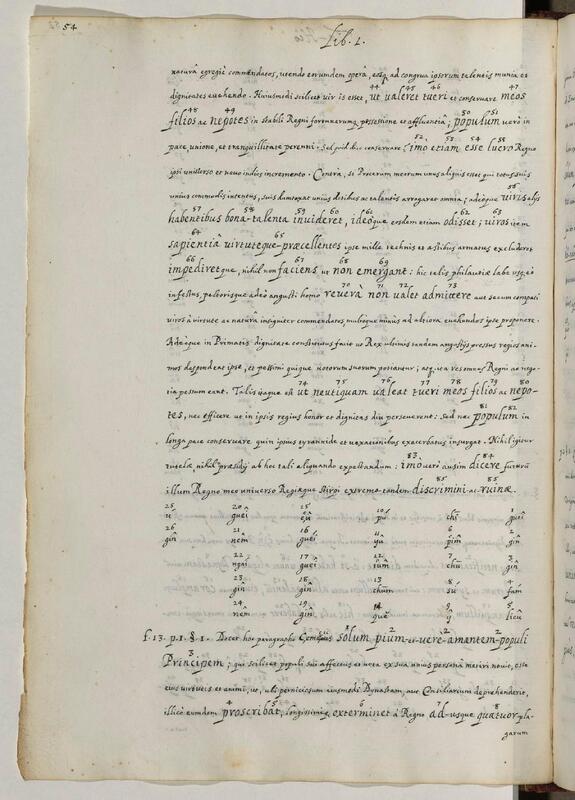 54
Lib. 1.
naturâ egregiè commendatos, utendo eorumdem operâ, eosque ad congrua ipsorum talentis munia et
dignitates evehendo. Huiusmodi scilicet vir is esset, 44 ut valeret 45 tueri 46 et conservare meos 47
filios 48 ac nepotes 49 in stabili Regni fortunarum, possessione et affluentiâ; populum 50 51 verò in
pace, unione, et tranquillitate perenni. Sed quid dico conservare? imo 52 etiam 53 esse 54 lucro 58 Regno
ipsi universo et novo indies incremento. Contra, si Procerum meorum unus aliquis esset qui totus suis
unius commodis intentus, suis dumtaxat unius dotibus ac talentis arrogaret omnia; adeòque viris 56 alijs
habentibus 57 bona 58 talenta 59 invideret, 60 ideòque 61 eosdem etiam odisset; 62 viros 63 item
sapientiâ 64 virtuteque 65 præcellentes ipse mille technis et astibus armatus excluderet
impediretque, 66 nihil non faciens 67 ut non 68 emergant: 69 hic talis philautiæ labe usque eò
infectus, pectorisque adeò angusti homo reverà 70 non 71 valet 72 admittere 73 aut secum compati
viros à virtute ac naturâ insigniter commendatos, multoque minùs ad altiora evehendos ipse proponere.
Adeòque in Primatis dignitate constitutus facit ut Rex ultimis tandem angustijs pressus regios animos
despondeat ipse, et pessimi quique votorum suorum potiantur; atque ita res omnes Regni ac negotia
pessum eant. Talis itaque est 74 ut neutiquam 75 valeat 76 tueri 77 meos 78 filios 79 ac nepotes, 80
nec efficere ut in ipsis regius honor et dignitas diu perseverent: Sed nec populum 81 82 in
longa pace conservare quin ipsius tyrannide et vexationibus exacerbatus insurgat. Nihil igitur
tutelæ nihil præsidij ab hoc tali aliquando expectandum: imò 83 verò ausim dicere 84 futurum
illum Regno meo universo Regiæque stirpi extremo tandem discrimini 85 ac ruinæ. 85
25 20 15 10 5 1
26 21 16 11 6 2
gin nêm gueí yû pim gin
22 17 12 7 3
ngai gueí iûm chu gin
23 18 13 8 4
gin gin chum su fam
24 19 14 9 5
nem gin
f. 13. p. 1. §. 1. Docet hoc paragrapho Cemçius solum 1 pium 2 et verè amantem 2 populi
Principem; 3 qui scilicet populi sui affectus et vota ex sua unius persona metiri novit, esse
eius virtutis et animi, ut, ubi perniciosum eiusmodi Dynastam, aut Consiliarium deprehenderit,
illicò eumdem 4 proscribat, 5 longissimè exterminet 6 à Regno ad 7 usque quatuor 8 pla-
garum